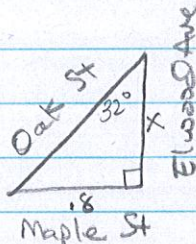 Oak St
32°
x
Elwood Ave
.8
Maple St